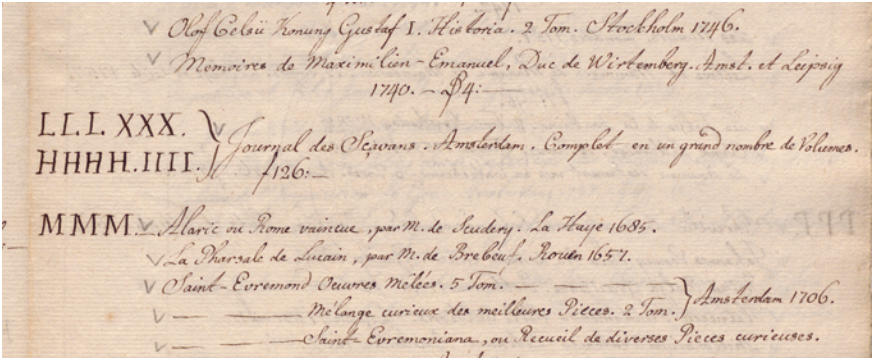 Olof Celsii Konung Gustaf I. Historia. 2 Tom. Stockholm 1746.
Memoires de Maximilien-Emanuel, Duc de Wirtemberg. Amst. et Leipsig
1740. —
LLL XXX.
HHHH.IIII.
Journal des Sçavans. Amsterdam. Complet en un grand nombre de Volumes.
126:—
MMM. Alaric ou Rome vaincue, par M. de Scudery. La Haye 1685.
La Pharsale de Lucain, par M. de Brebeuf. Rouen 1657.
Saint-Evremond Oeuvres Mêlées. 5 Tom. — —
— Mélange curieux des meilleures Pieces. 2 Tom. } Amsterdam 1706.
— Saint-Evremoniana, ou Recueil de diverses Pieces curieuses.